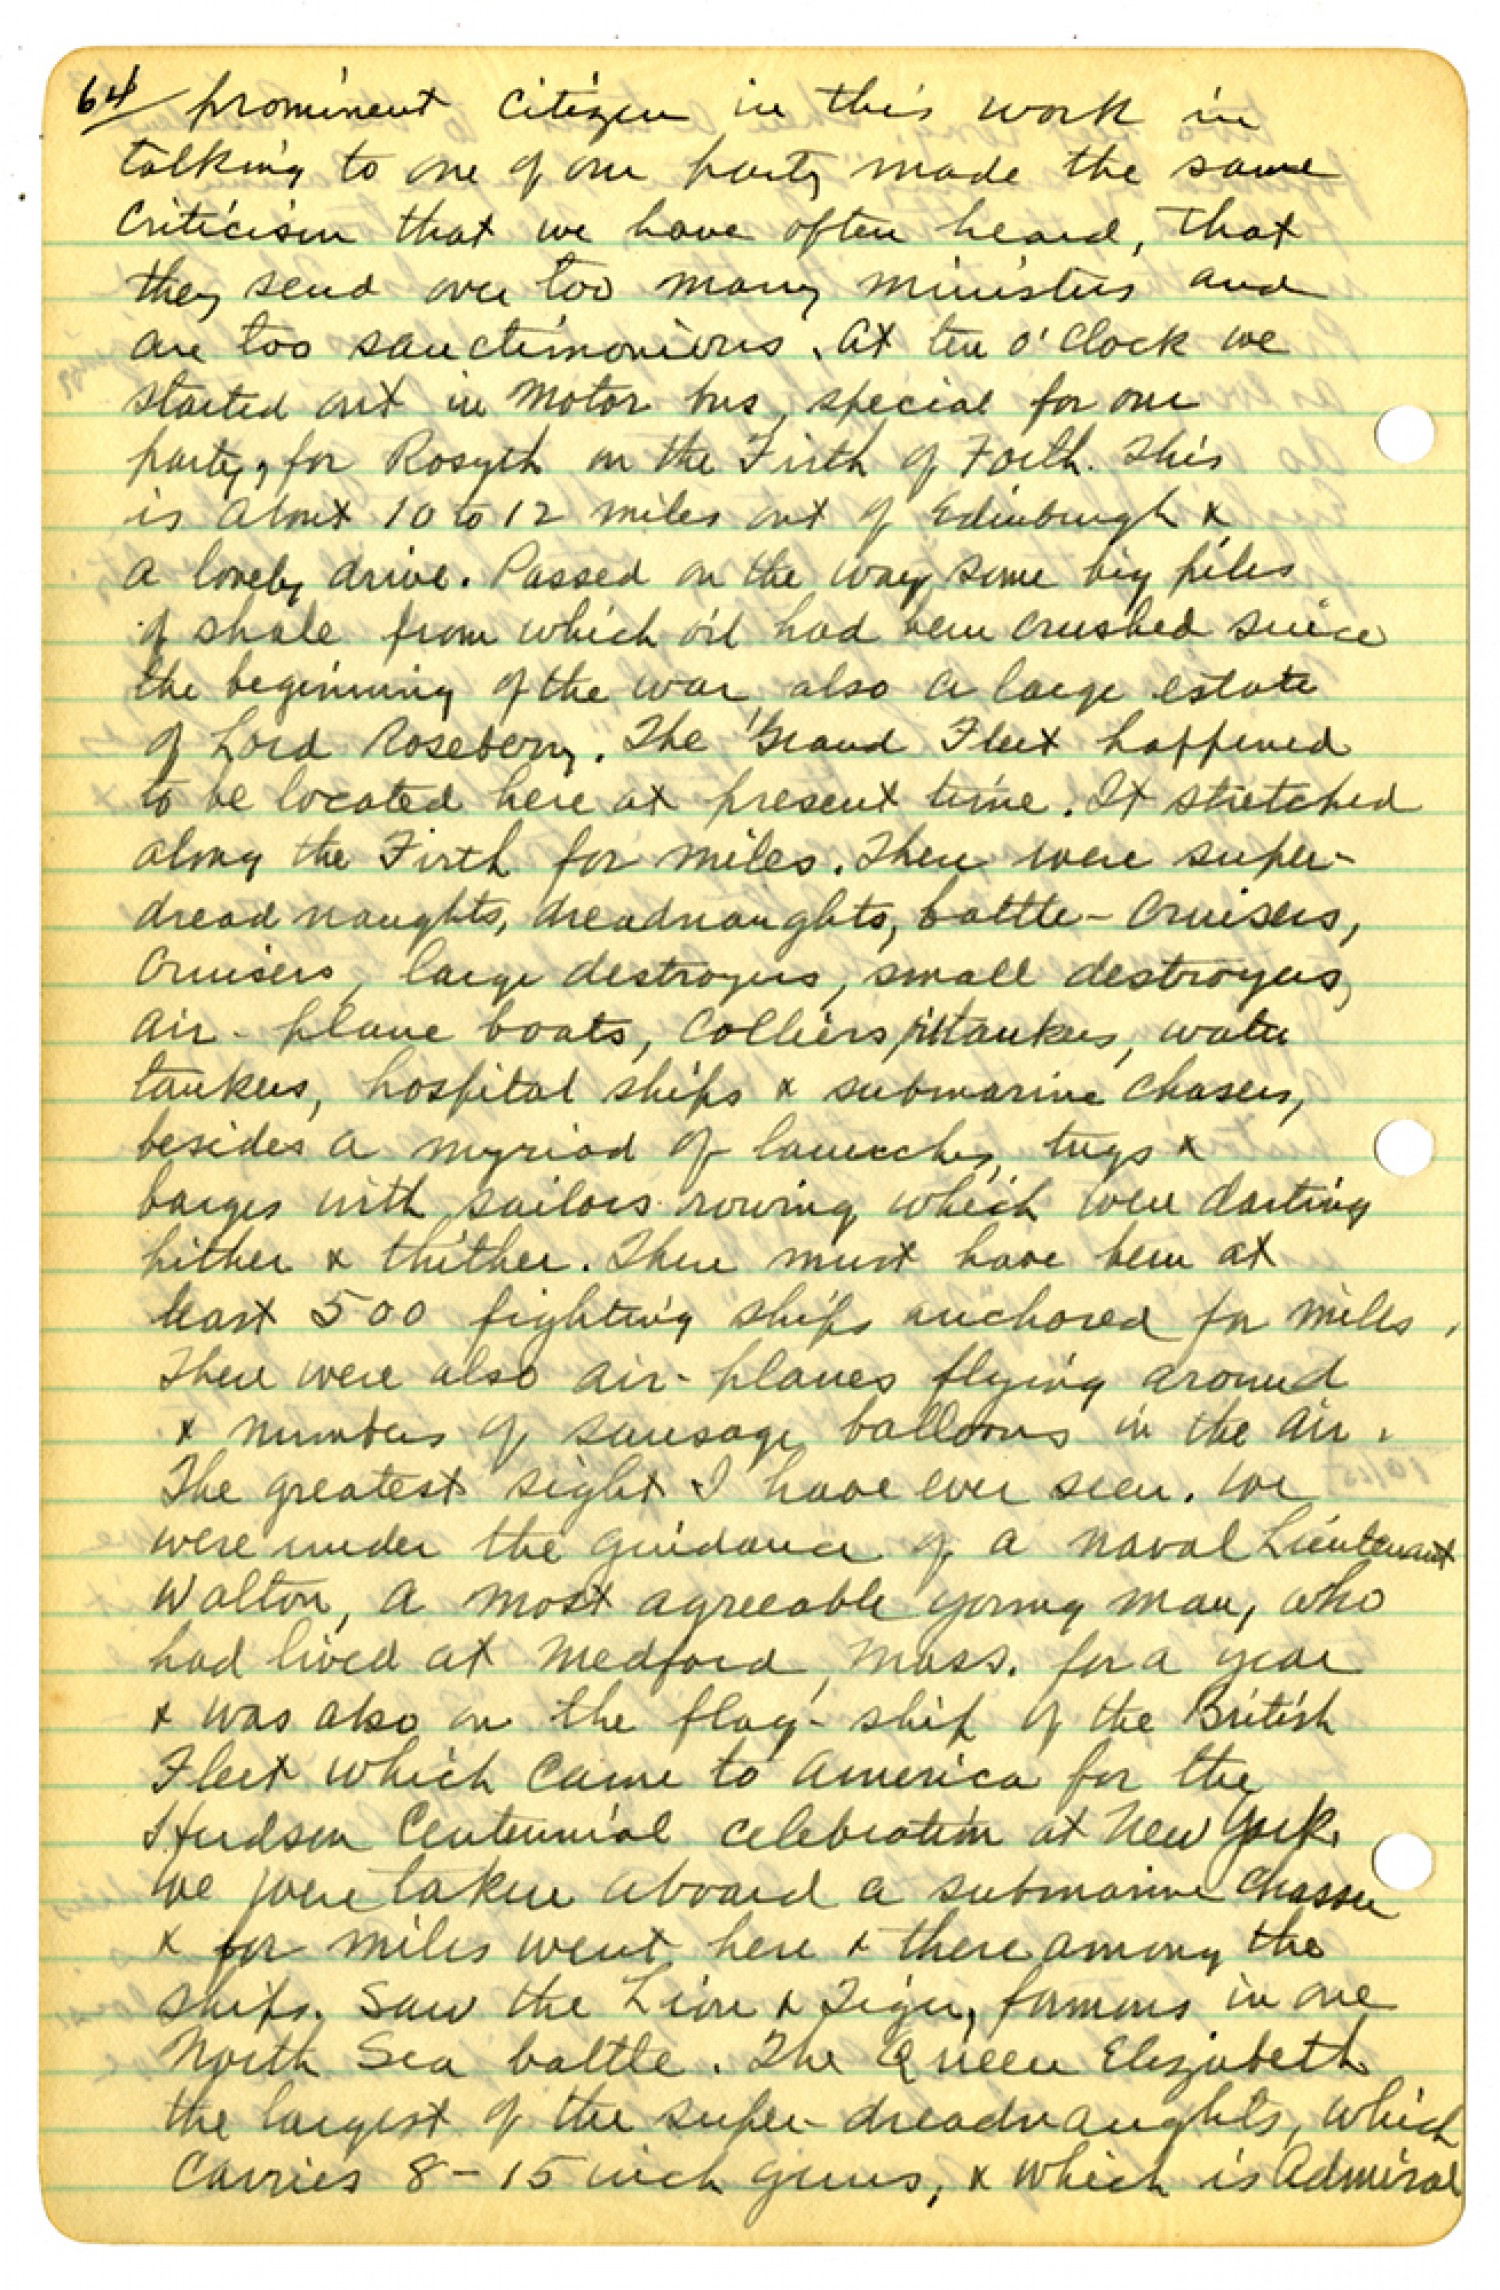 64/ prominent citizen in this work in
talking to one of our party made the same
criticism that we have often heard, that
they send over too many ministers and
are too sanctimonious. At ten o'clock we
started out in motor bus, special for our
party, for Rosyth on the Firth of Forth. This
is about 10 to 12 miles out of Edinburgh &
a lovely drive. Passed on the way some big piles
of shale from which oil had been crushed since
the beginning of the war, also a large estate
of Lord Rosebery. The Grand Fleet happened
to be located here at present time. It stretched
along the Firth for miles. There were super-
dreadnaughts, dreadnaughts, battle-cruisers,
cruisers, large destroyers, small destroyers,
air-plane boats, colliers, oil tankers, water
tankers, hospital ships & submarine chasers,
besides a myriad of launches, tugs &
barges with sailors rowing which were darting
hither & thither. There must have been at
least 500 fighting ships anchored for miles.
There were also air-planes flying around
& numbers of sausage balloons in the air.
The greatest sight I have ever seen. We
were under the guidance of a naval Lieutenant
Walton, a most agreeable young man, who
had lived at Medford, Mass. for a year
& was also on the flag-ship of the British
Fleet which came to America for the
Hudson Centennial celebration at New York.
We were taken aboard a submarine chasser
& for miles went here & there among the
ships. Saw the Lion & Tiger, famous in one
North Sea battle. The Queen Elizabeth
the largest of the super-dreadnaughts, which
carries 8-15 inch guns, & which is Admiral